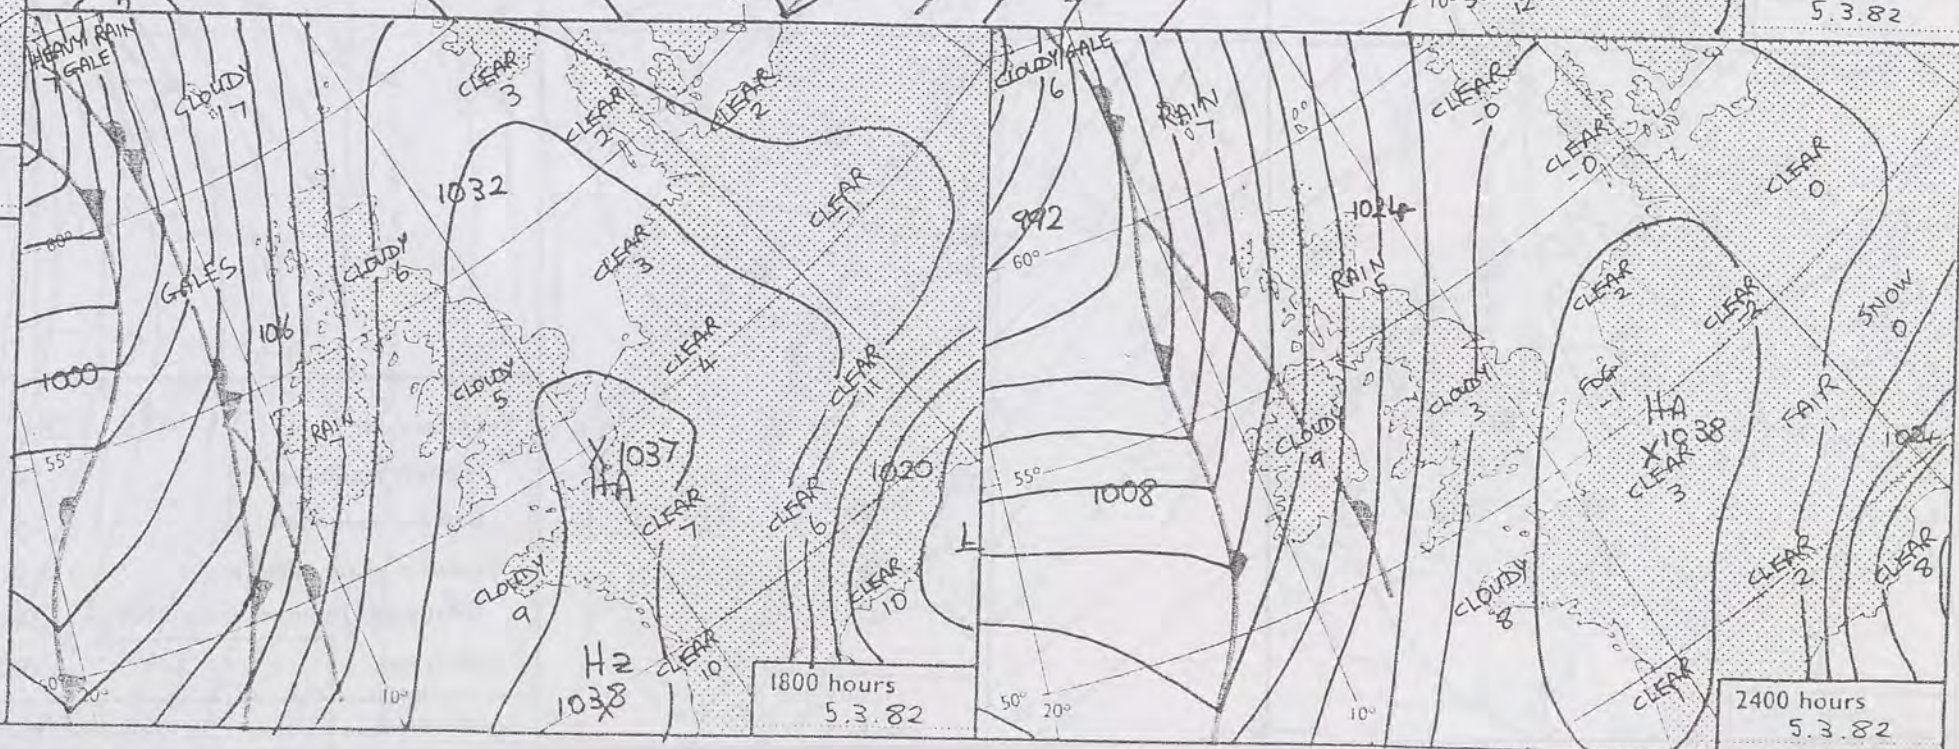 10°
12
5.3.82
HEAVY RAIN
GALE
7
CLOUDY
7
CLEAR
3
CLEAR
2
CLEAR
2
1032
CLEAR
-1
60°
CLOUDY
6
CLEAR
3
GALES
1016
1000
CLEAR
4
CLOUDY
5
CLEAR
RAIN
7
55°
X 1037
HA
1020
CLEAR
7
CLEAR
6
L
CLOUDY
9
CLEAR
10
H2
1038
X
CLEAR
10
50°
20°
10°
1800 hours
5.3.82
CLOUDY GALE
6
RAIN
7
CLEAR
-0
CLEAR
-0
CLEAR
0
992
1024
60°
RAIN
5
CLEAR
2
CLEAR
-2
SNOW
0
FOG
-1
CLOUDY
3
HA
X 1038
CLEAR
3
FAIR
1
CLOUDY
9
55°
1008
CLEAR
-2
CLEAR
8
CLOUDY
8
CLEAR
50°
20°
10°
2400 hours
5.3.82